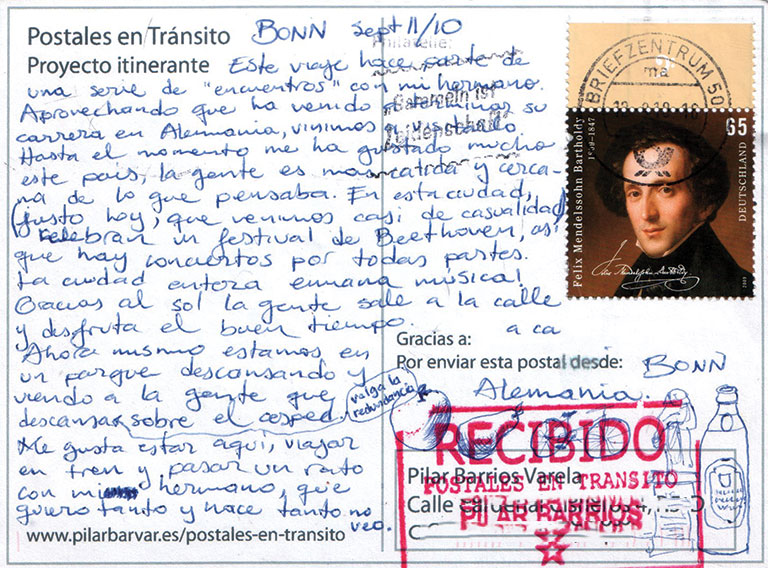 Postales en Tránsito BONN Sept 11/10
Proyecto itinerante Este viaje hace parte de
una serie de "encuentros" con mi hermano.
Aprovechando que ha venido a terminar su
carrera en Alemania, vinimos a visitarlo
Hasta el momento me ha gustado mucho
este país, la gente es mas calida y cerca-
na de lo que pensaba. En esta ciudad,
(justo hoy, que venimos casi de casualidad)
celebran un festival de Beethoven, asi
que hay conciertos por todas partes.
La ciudad entera emana música!
Gracias al sol la gente sale a la calle
y disfruta el buen tiempo.
Ahora mismo estamos en
un parque descansando y
viendo a la gente que
descansa sobre el cesped.
valga la
redundancia
Me gusta estar aquí, viajar
en tren y pasar un rato
con mi hermano, que
quiero tanto y hace tanto no
veo.
www.pilarbarvar.es/postales-en-transito
Philatelie:
BRIEFZENTRUM 50
ma
65
DEUTSCHLAND
Felix Mendelssohn Bartholdy
1809–1847
a ca
Gracias a:
Por enviar esta postal desde: BONN
Alemania.
RECIBIDO
Pilar Barrios Varela
POSTALES EN TRANSITO
Calle
PILAR BARRIOS